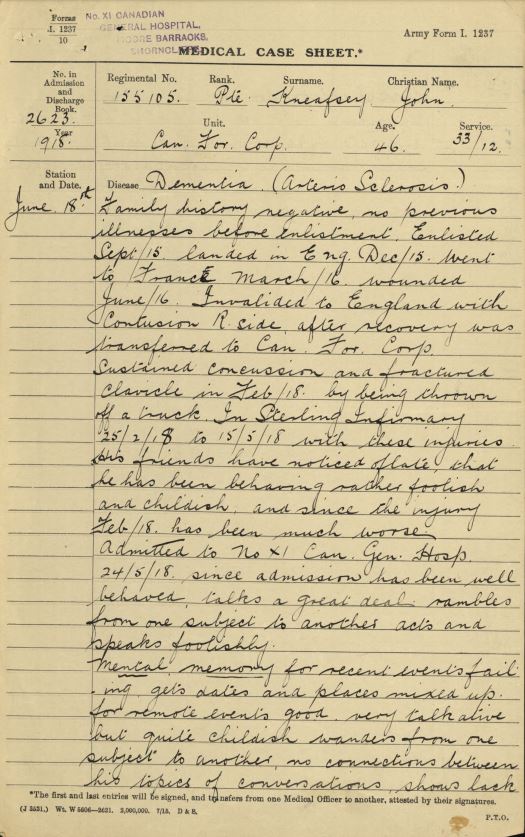 Forms
I. 1237
10
No. XI CANADIAN
GENERAL HOSPITAL,
MOORE BARRACKS,
SHORNCLIFFE
Army Form I. 1237
MEDICAL CASE SHEET.*
No. in
Admission
and
Discharge
Book.
2623.
Year
1918.
Regimental No. Rank. Surname. Christian Name.
155105. Pte. Kneafsey. John.
Unit. Age. Service.
Can. For. Corp. 46. 33/12.
Station
and Date.
June 18.st
Disease Dementia. (Arterio Sclerosis.)
Family history negative, no previous
illnesses before enlistment. Enlisted
Sept/15. landed in Eng. Dec/15. went
to France March/16. wounded
June/16. Invalided to England with
Contusion R. side, after recovery was
transferred to Can. For. Corp.
Sustained concussion and fractured
clavicle in Feb/18. by being thrown
off a truck. In Sterling Infirmary
25/2/18 to 15/5/18 with these injuries.
His friends have noticed of late, that
he has been behaving rather foolish
and childish, and since the injury
Feb/18. has been much worse
Admitted to No XI Can. Gen. Hosp.
24/5/18. since admission has been well
behaved, talks a great deal rambles
from one subject to another acts and
speaks foolishly.
Mental memory for recent events fail-
-ing gets dates and places mixed up.
for remote events good. very talkative
but quite childish wanders from one
subject to another, no connections between
his topics of conversations, shows lack
*The first and last entries will be signed, and transfers from one Medical Officer to another, attested by their signatures.
(J 3531.) Wt. W 5606—2621. 2,000,000. 7/15. D & S.
P.T.O.